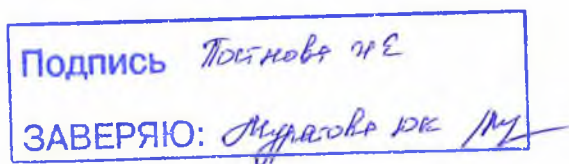 Подпись Постнова НЕ
ЗАВЕРЯЮ: Муратова ЮК